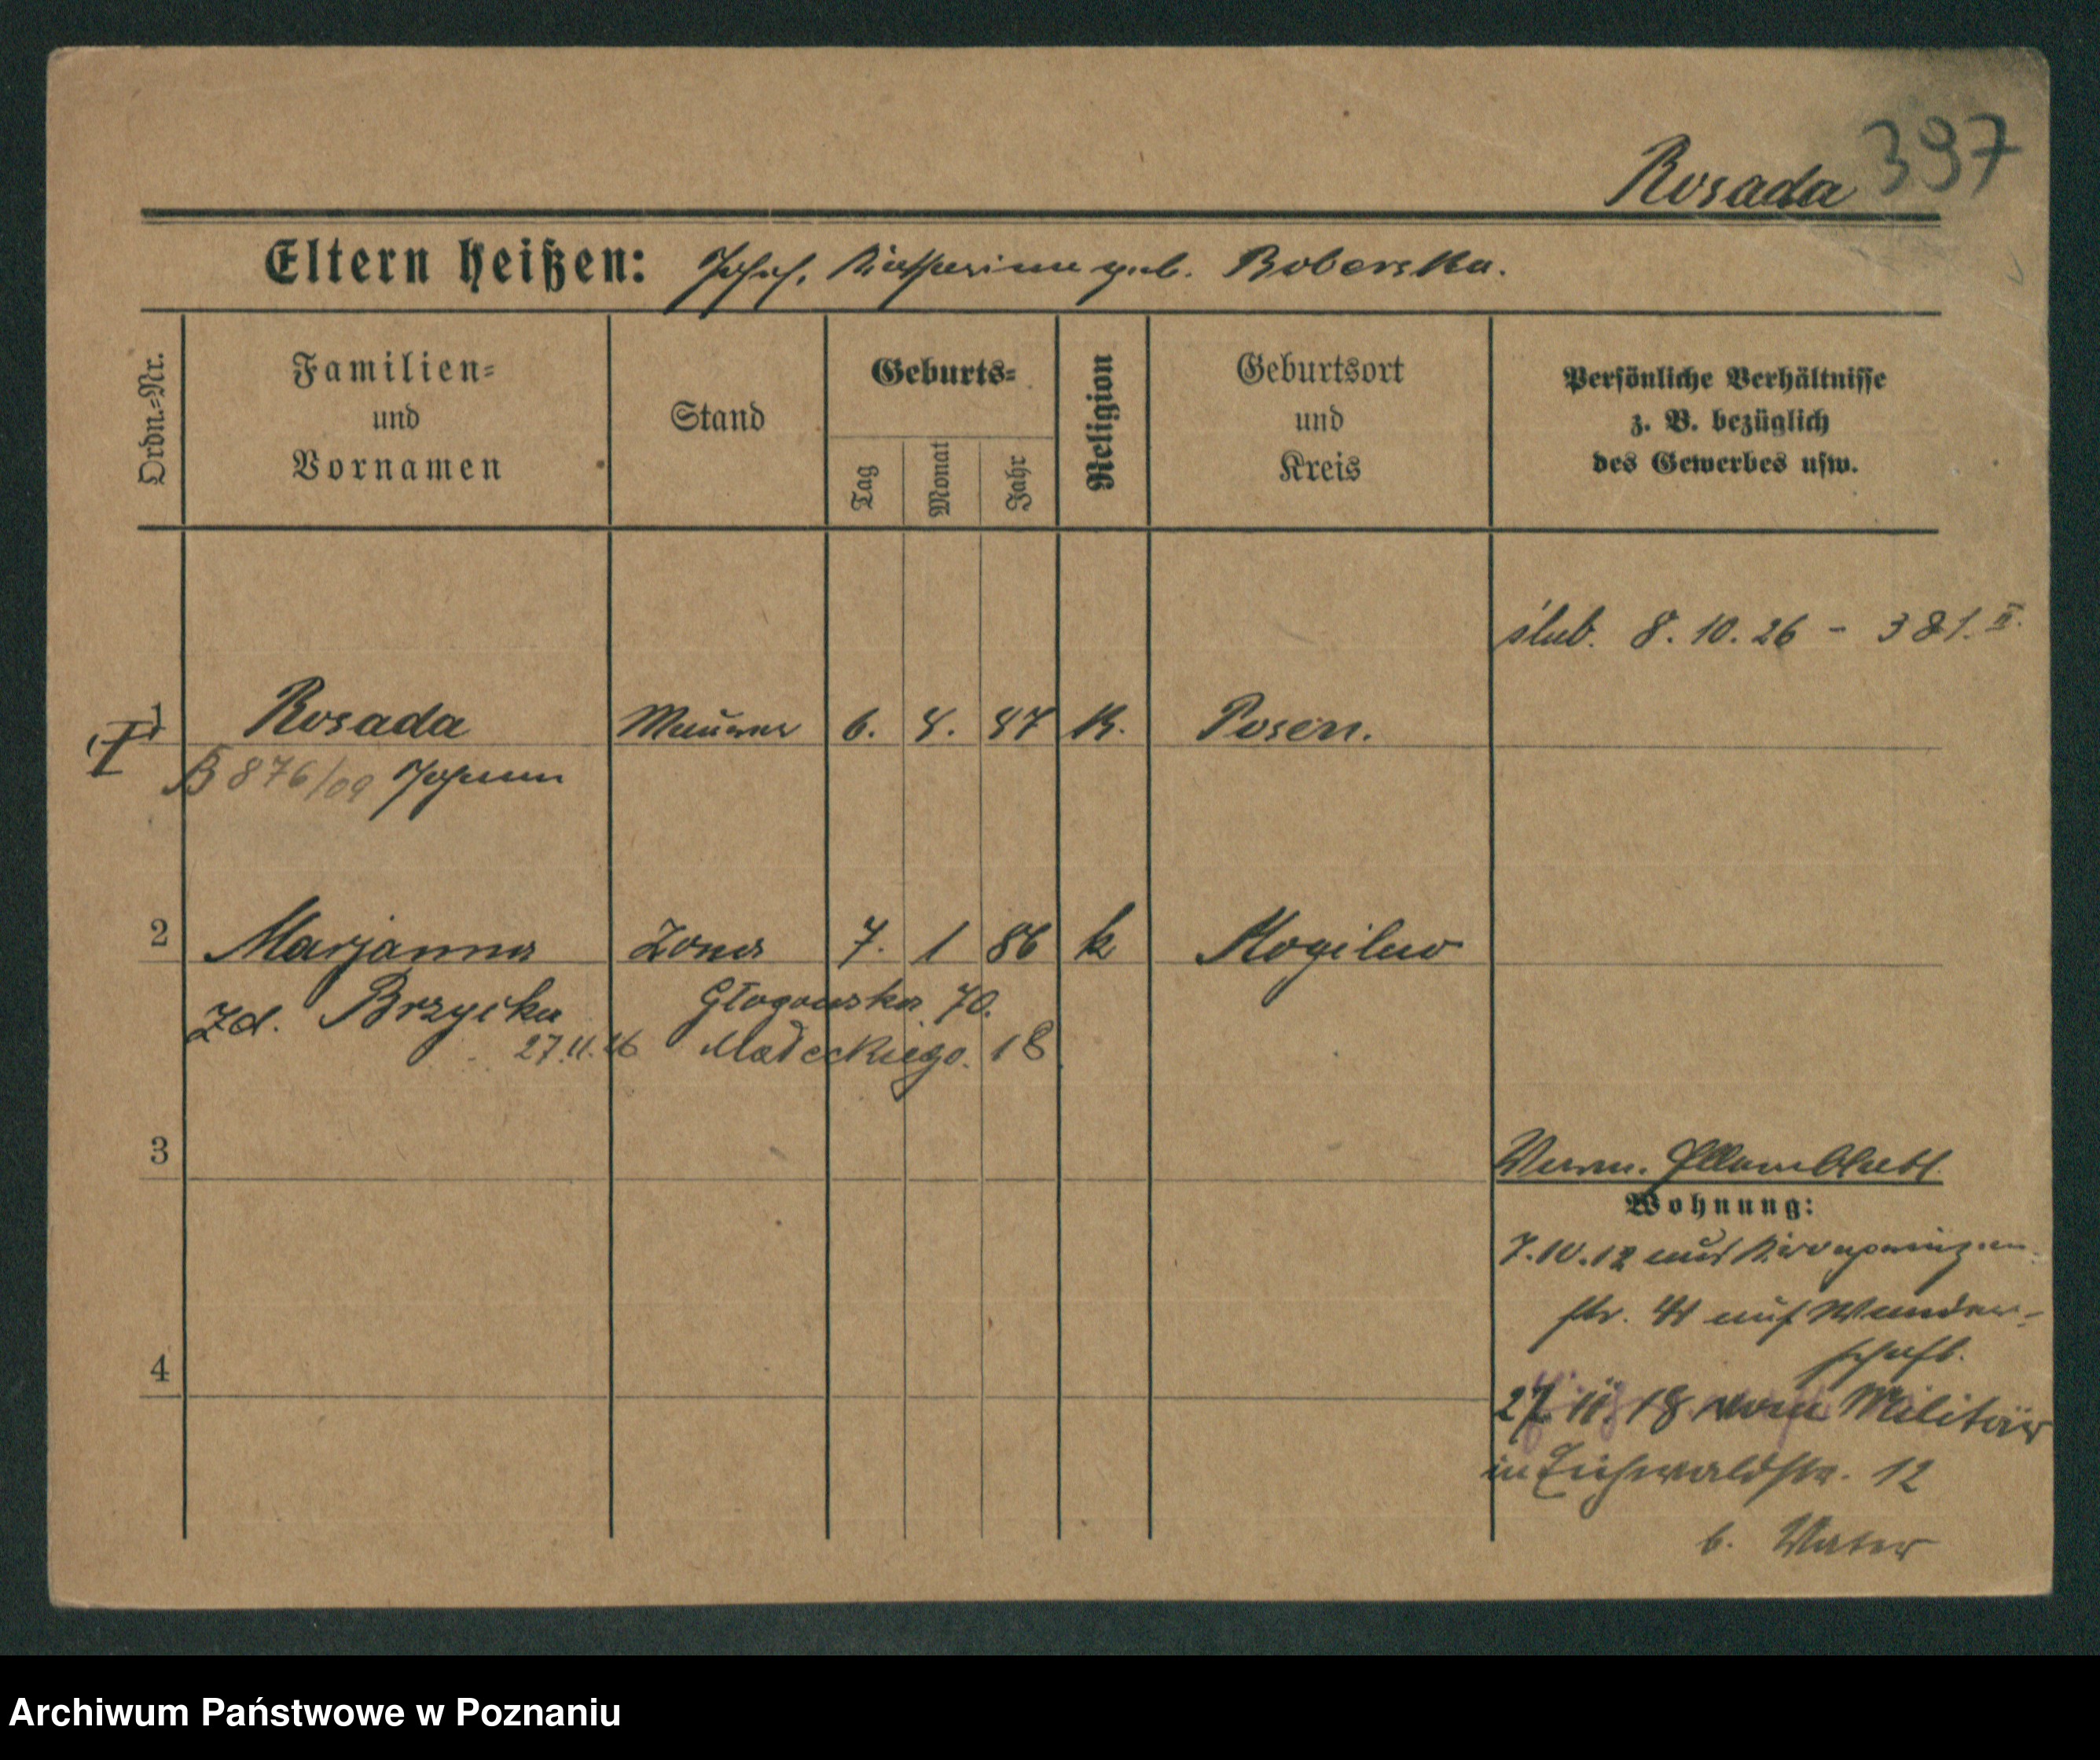 397
Rosada
Eltern heißen: Josef, Katharina geb. Boberska.
Ordn.-Nr.
Familien-
und
Vornamen
Stand
Geburts-
Tag
Monat
Jahr
Religion
Geburtsort
und
Kreis
Persönliche Verhältnisse
z. B. bezüglich
des Gewerbes usw.
ślub. 8.10.26 - 381. II.
1 Rosada Maurer 6. 8. 87 K. Posen.
B 876/09 Johann
2 Marjanna Żona 7. 1 86 k Mogilno
Zd. Brzyska Głogowska 70.
27.11.26 Małeckiego. 18
3
Wohnung:
7.10.12 aus Kronprinzen
str. auf Wander-
schaft.
4
27.11.18 vom Militär
in Eichwaldstr. 12
b. Vater
Archiwum Państwowe w Poznaniu